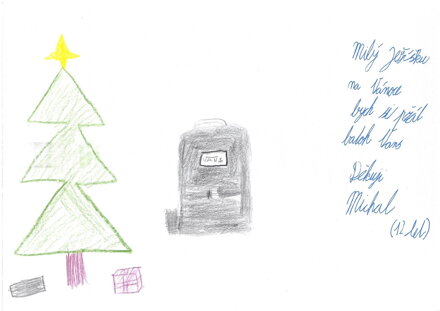 Milý Ježíšku
na Vánoce
bych si přál
batoh Vans
Děkuji
Michal
(12 let)
VANS